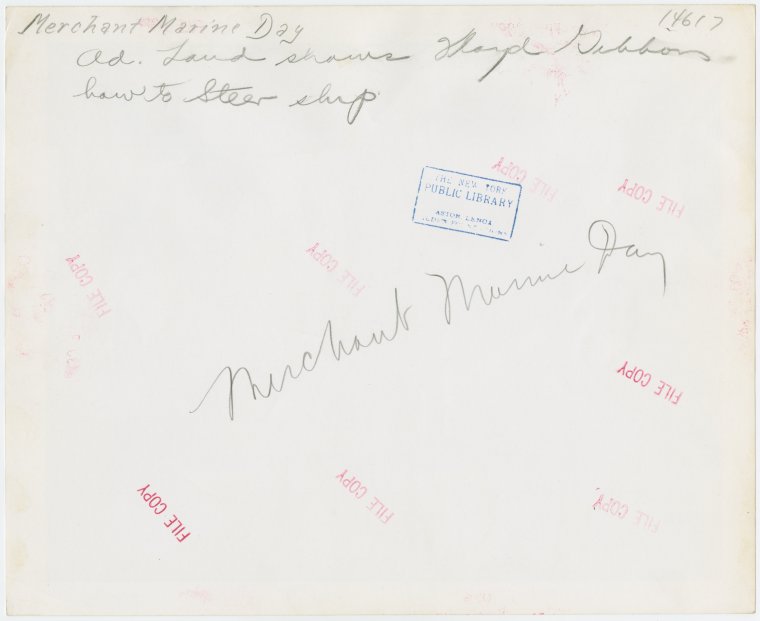 Merchant Marine Day
14617
Ad. Land shows Floyd Gibbons
how to Steer ship
THE NEW YORK
PUBLIC LIBRARY
ASTOR LENOX
FILE COPY
FILE COPY
FILE COPY
FILE COPY
Merchant Marine Day
FILE COPY
FILE COPY
FILE COPY
FILE COPY